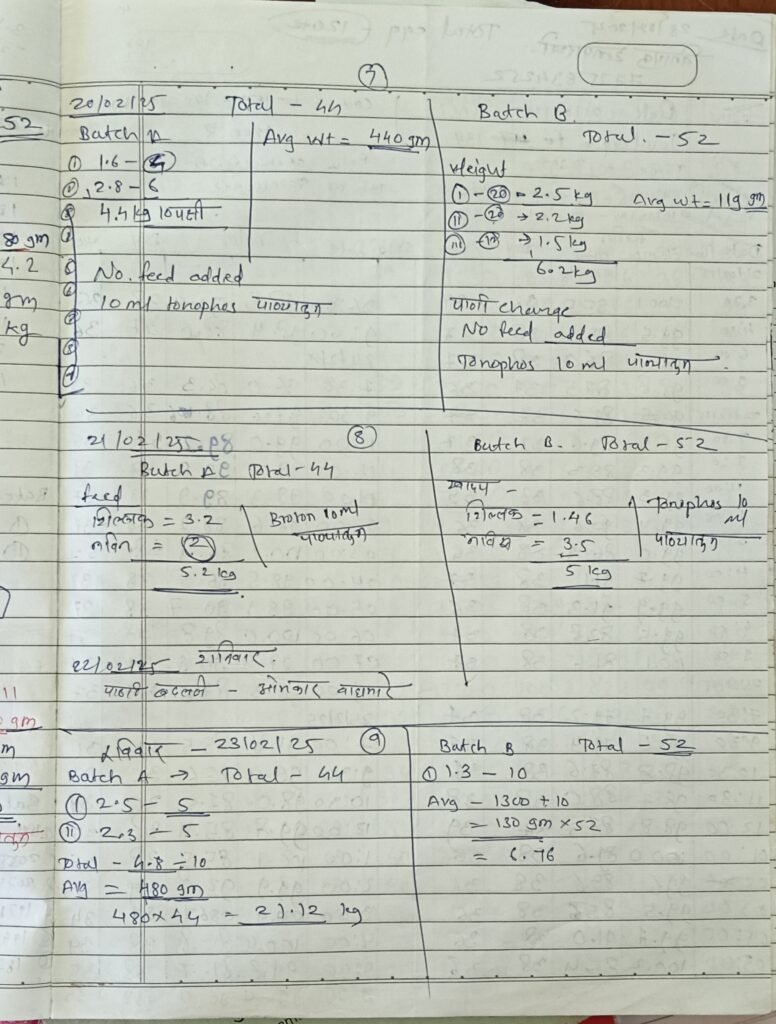 7
20/02/25 Total - 44
Batch A
Avg wt = 440 gm
① 1.6 - 4
② 2.8 - 6
4.4 kg 10 पक्षी
No. feed added
10 ml tonophos पाण्यातून
Batch B.
Total. - 52
Weight
Ⓘ - 20 = 2.5 kg
Avg wt = 119 gm
II - 20 → 2.2 kg
III - 12 → 1.5 kg
6.2 kg
पाणी change
No feed added
Tonophos 10 ml पाण्यातून.
21/02/25 8
Batch A Total - 44
feed
शिल्लक = 3.2
नविन = 2
5.2 kg
Broton 10 ml
पाण्यातून
Batch B. Total - 52
खाद्य -
शिल्लक = 1.46
नविन = 3.5
5 kg
Tonophos 10
ml
पाण्यातून
22/02/25 शनिवार.
पाणी बदलली - ओमकार वाघमारे
रविवार - 23/02/25 9
Batch A → Total - 44
Ⓘ 2.5 - 5
II 2.3 - 5
Total - 4.8 ÷ 10
Avg = 480 gm
480 × 44 = 21.12 kg
Batch B Total - 52
① 1.3 - 10
Avg - 1300 ÷ 10
= 130 gm × 52
= 6.76
52
80 gm
4.2
gm
kg
11
gm
m
gm